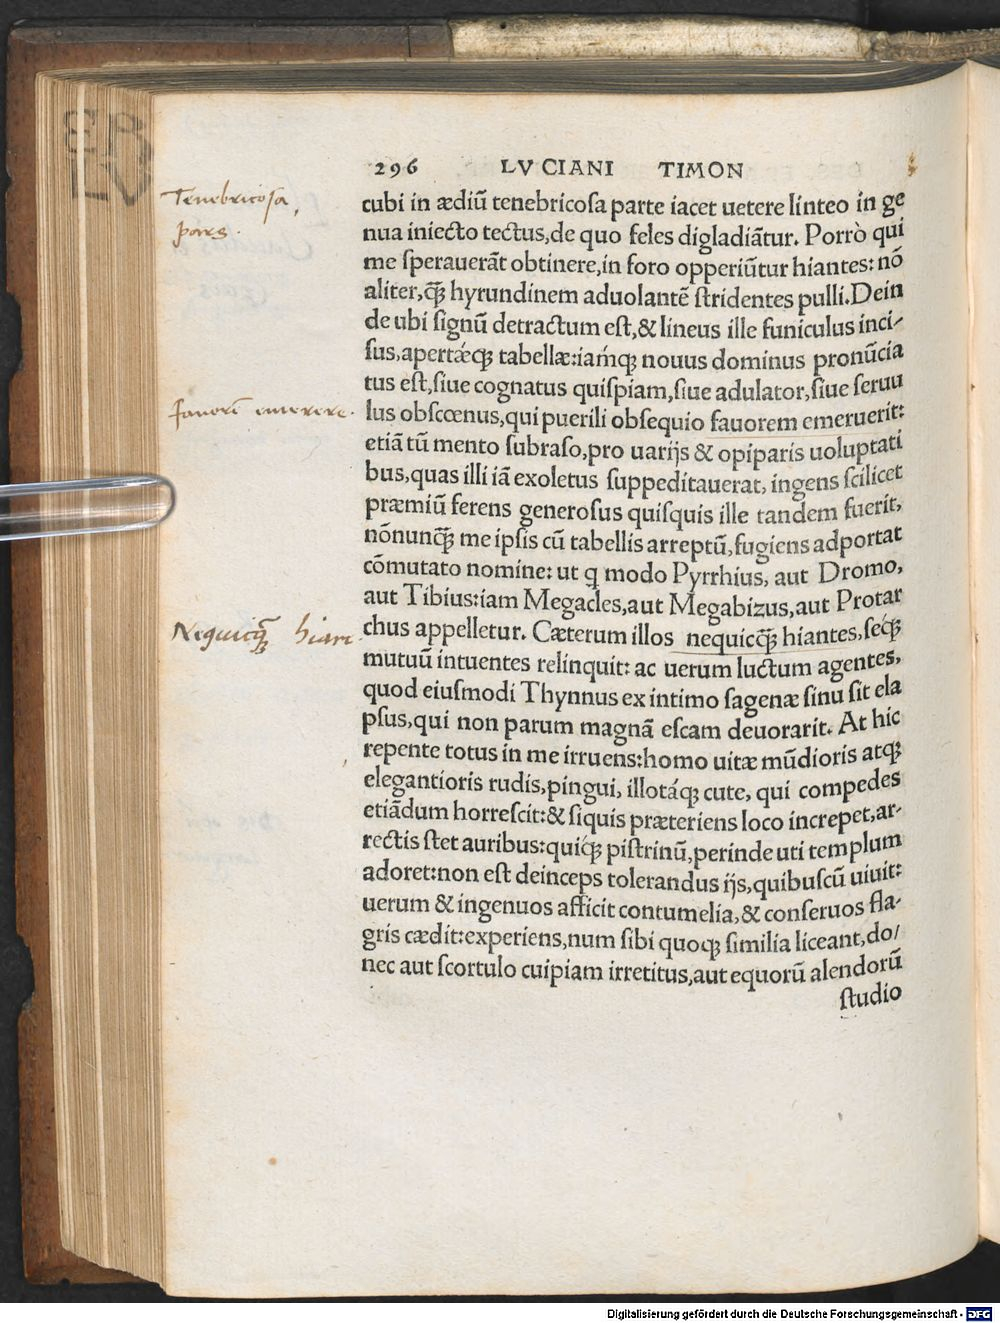 296 LVCIANI TIMON
Tenebricosa
pars.
cubi in ædiũ tenebricoſa parte iacet uetere linteo in ge
nua iniecto tectus,de quo feles digladiãtur. Porrò qui
me ſperauerãt obtinere,in foro opperiũtur hiantes: nõ
aliter,q̃ꝫ hyrundinem aduolantẽ ſtridentes pulli.Dein
de ubi ſignũ detractum eſt,& lineus ille funiculus inci-
ſus,apertǽqꝫ tabellæ:iamq́ꝫ nouus dominus pronũcia
tus eſt,ſiue cognatus quiſpiam,ſiue adulator,ſiue ſeruu
fauorẽ emerere.
lus obſcœnus,qui puerili obſequio fauorem emeruerit:
etiã tũ mento ſubraſo,pro uarijs & opiparis uoluptati
bus,quas illi iã exoletus ſuppeditauerat, ingens ſcilicet
præmiũ ferens generoſus quiſquis ille tandem fuerit,
nõnunq̃ꝫ me ipſis cũ tabellis arreptũ,fugiens adportat
cõmutato nomine: ut q modo Pyrrhius, aut Dromo,
aut Tibius:iam Megacles,aut Megabizus,aut Protar
Nequicq̃ꝫ hiare
chus appelletur. Cæterum illos nequicq̃ꝫ hiantes,ſeq́ꝫ
mutuũ intuentes relinquit: ac uerum luctum agentes,
quod eiuſmodi Thynnus ex intimo ſagenæ ſinu ſit ela
pſus,qui non parum magnã eſcam deuorarit. At hic
repente totus in me irruens:homo uitæ mũdioris atqꝫ
elegantioris rudis,pingui, illotáqꝫ cute, qui compedes
etiãdum horreſcit:& ſiquis præteriens loco increpet,ar-
rectis ſtet auribus:quiq́ꝫ piſtrinũ,perinde uti templum
adoret:non eſt deinceps tolerandus ijs,quibuſcũ uiuit:
uerum & ingenuos afficit contumelia,& conſeruos fla-
gris cædit:experiens,num ſibi quoqꝫ ſimilia liceant,do/
nec aut ſcortulo cuipiam irretitus,aut equorũ alendorũ
ſtudio
Digitalisierung gefördert durch die Deutsche Forschungsgemeinschaft - DFG